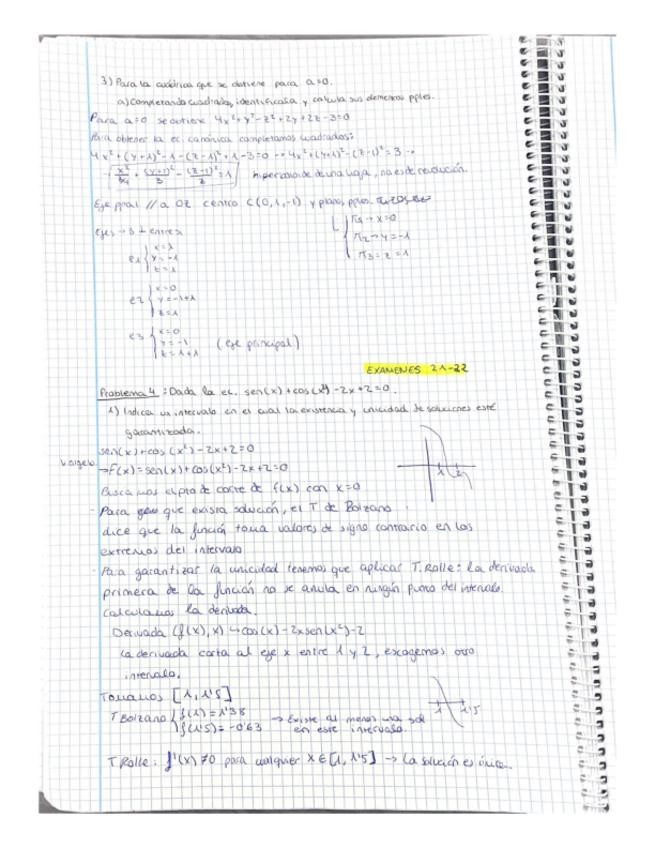 3) Para la cuádrica que se obtiene para a=0.
a) Completando cuadrados, identifícala y calcula sus elementos pples.
Para a=0 se obtiene 4x²+y²-z²+2y+2z-3=0
Para obtener la ec. canónica completamos cuadrados:
4x²+(y+1)²-1-(z-1)²+1-3=0 → 4x²+(y+1)²-(z-1)²=3 →
hiperboloide de una hoja, no es de revolución.
Eje ppal // a OZ centro C(0,1,-1) y planos pples.
π1 → x=0
π2 → y=-1
π3 = z=1
Ejes → 3 ⊥ entre sí
e1 { x=λ
y=-1
z=1
e2 { x=0
y=-1+λ
z=1
e3 { x=0
y=-1 (eje principal)
z=1+λ
EXAMENES 21-22
Problema 4: Dada la ec. sen(x)+cos(x²)-2x+2=0.
1) Indica un intervalo en el cual la existencia y unicidad de soluciones esté
garantizada.
sen(x)+cos(x²)-2x+2=0
→ f(x)=sen(x)+cos(x²)-2x+2=0
Buscamos el pto de corte de f(x) con x=0
- Para que exista solución, el T de Bolzano
dice que la función toma valores de signo contrario en los
extremos del intervalo
- Para garantizar la unicidad tenemos que aplicar T. Rolle: la derivada
primera de la función no se anula en ningún punto del intervalo.
Calculamos la derivada.
Derivada (f(x),x) → cos(x)-2xsen(x²)-2
La derivada corta al eje x entre 1 y 2, escogemos otro
intervalo.
Tomamos [1,1'5]
T Bolzano { f(1)=1'38 → Existe al menos una sol
f(1'5)=-0'63 en este intervalo.
1 1'5
T Rolle: f'(x)≠0 para cualquier x∈[1,1'5] → La solución es única.